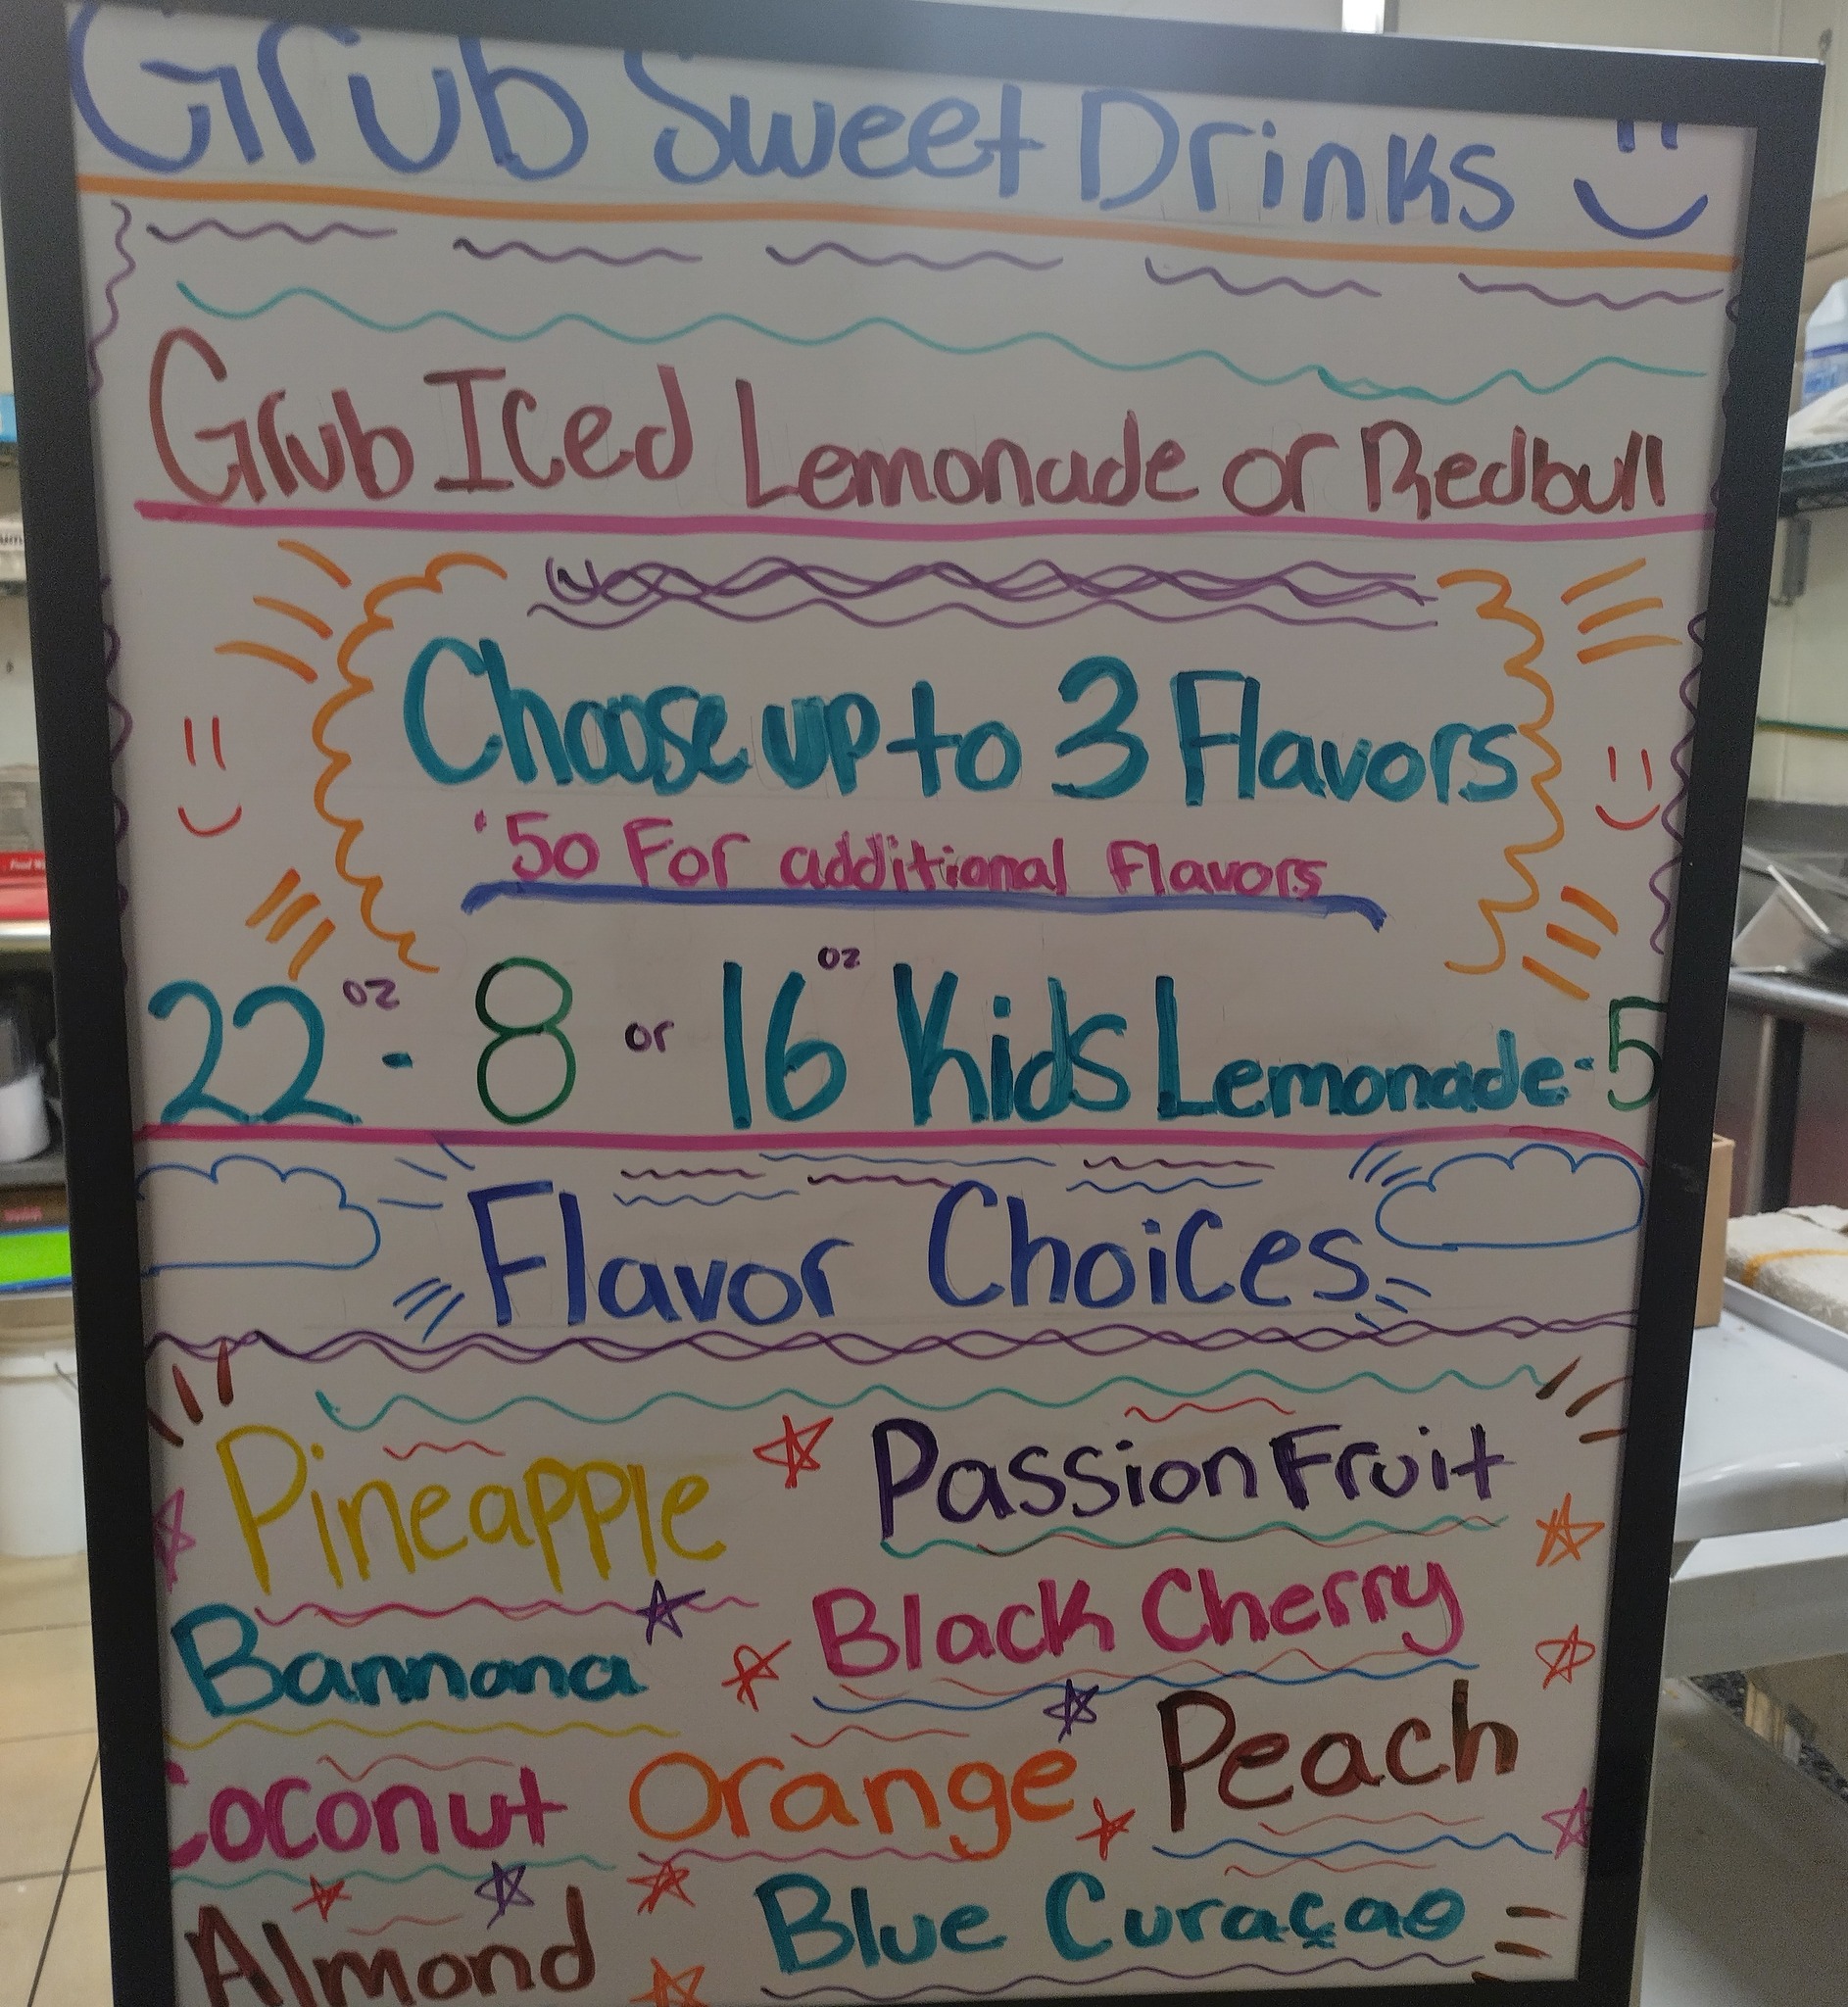 Grub Sweet Drinks
Grub Iced Lemonade or Redbull
Choose up to 3 Flavors
.50 For additional Flavors
22 oz - 8 or 16 oz Kids Lemonade - 5
Flavor Choices
Pineapple Passion Fruit
Bannana Black Cherry
Coconut Orange Peach
Almond Blue Curaçao